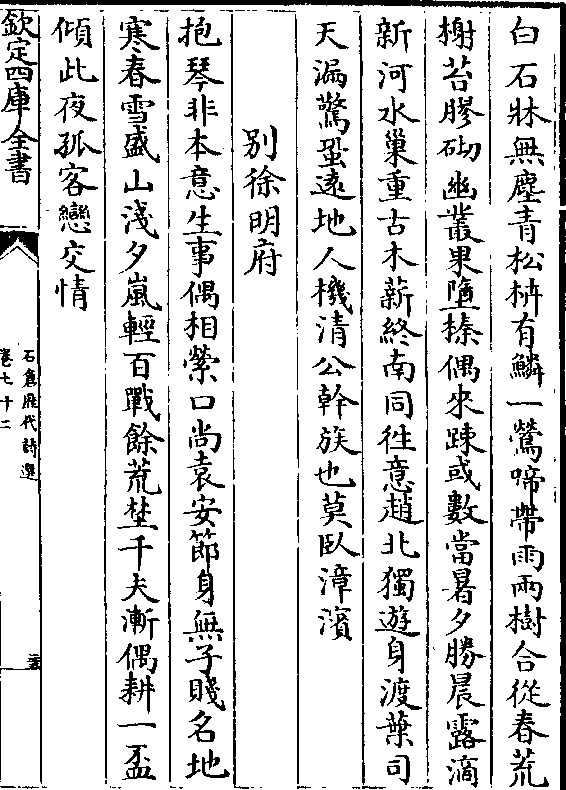 白石牀無塵青松枿有鱗一鶯啼帶雨兩樹合從春荒
榭苔膠砌幽叢果墮榛偶來踈或數當暑夕勝晨露滴
新河水巢重古木薪終南同徃意趙北獨遊身渡葉司
天漏驚蛩遠地人機清公幹族也莫臥漳濱
別徐明府
抱琴非本意生事偶相縈口尚袁安節身無子賤名地
寒春雪盛山淺夕嵐輕百戰餘荒埜千夫漸偶耕一盃
傾此夜孤客戀交情
欽定四庫全書
石倉歷代詩選
卷七十二